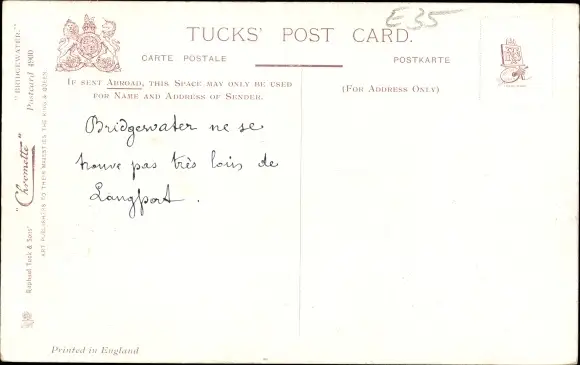 TUCKS' POST CARD.
E35
CARTE POSTALE
POSTKARTE
IF SENT ABROAD, THIS SPACE MAY ONLY BE USED
FOR NAME AND ADDRESS OF SENDER.
(FOR ADDRESS ONLY)
Bridgewater ne se
trouve pas très loin de
Langport.
"BRIDGEWATER."
Postcard 4900
"Chromette"
Raphael Tuck & Sons'
ART PUBLISHERS TO THEIR MAJESTIES THE KING & QUEEN
Printed in England